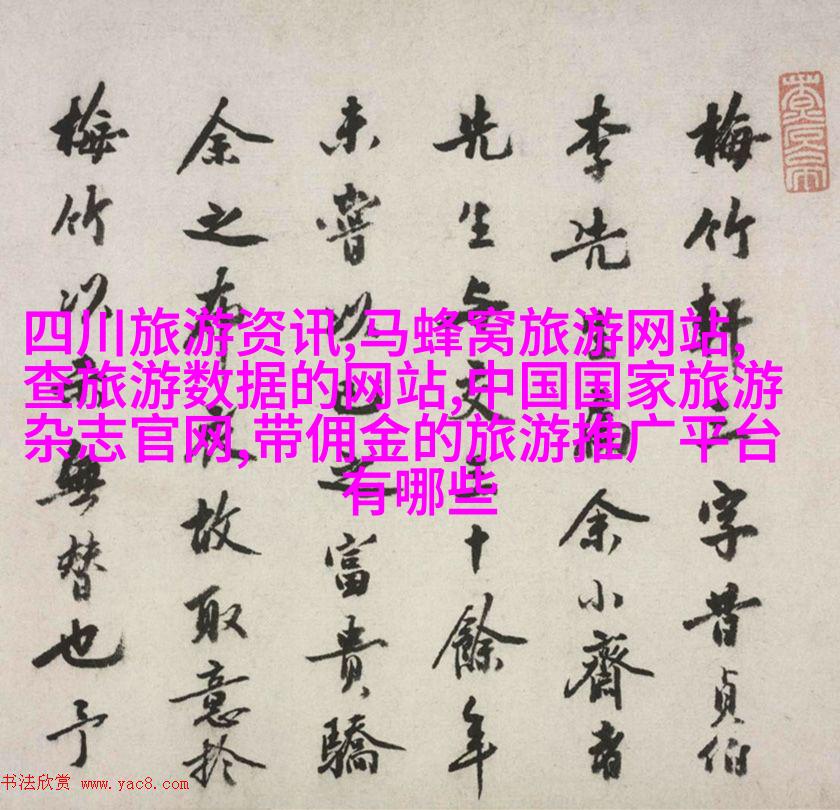 梅竹軒字昔貞伯
李先扁余小齋者
先生与交十餘年
未嘗以之富貴驕
余之布故取意於
梅竹以無替也予
四川旅游资讯,马蜂窝旅游网站,
查旅游数据的网站,中国国家旅游
杂志官网,带佣金的旅游推广平台
有哪些
书法欣赏 www.yac8.com